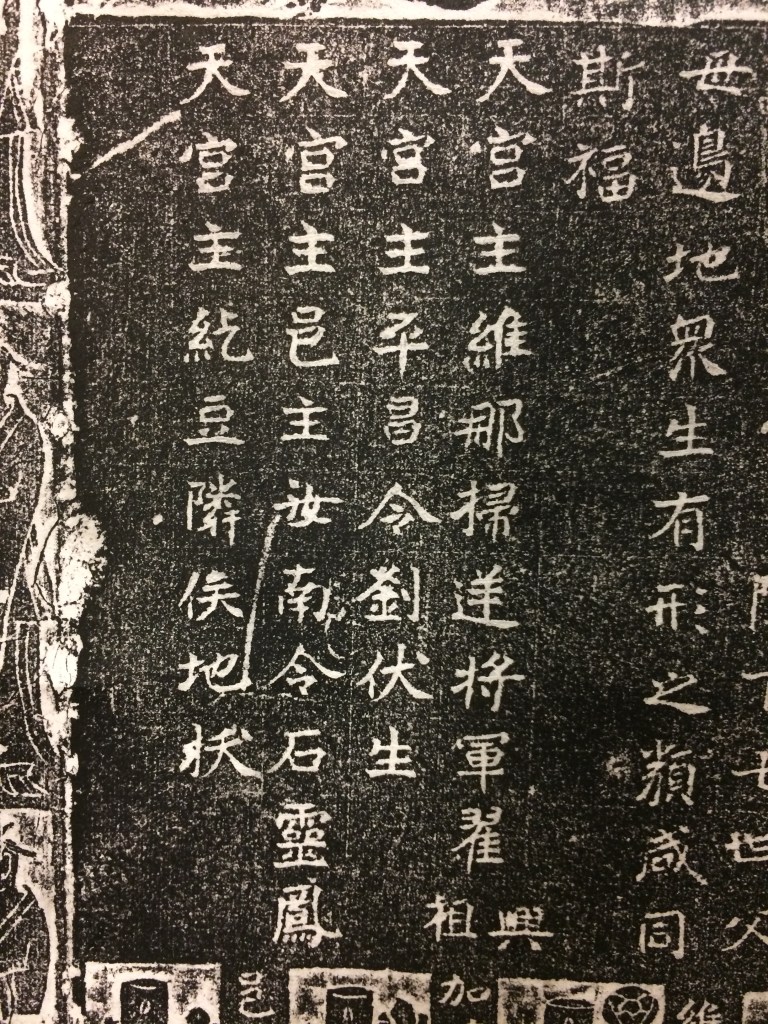 下七世父
毋邊地眾生有形之類咸同
斯福
天宮主維那掃逆將軍翟興祖
天宮主平昌令劉伏生
天宮主邑主汝南令石靈鳳
天宮主紇豆隣俟地拔
維
加
邑